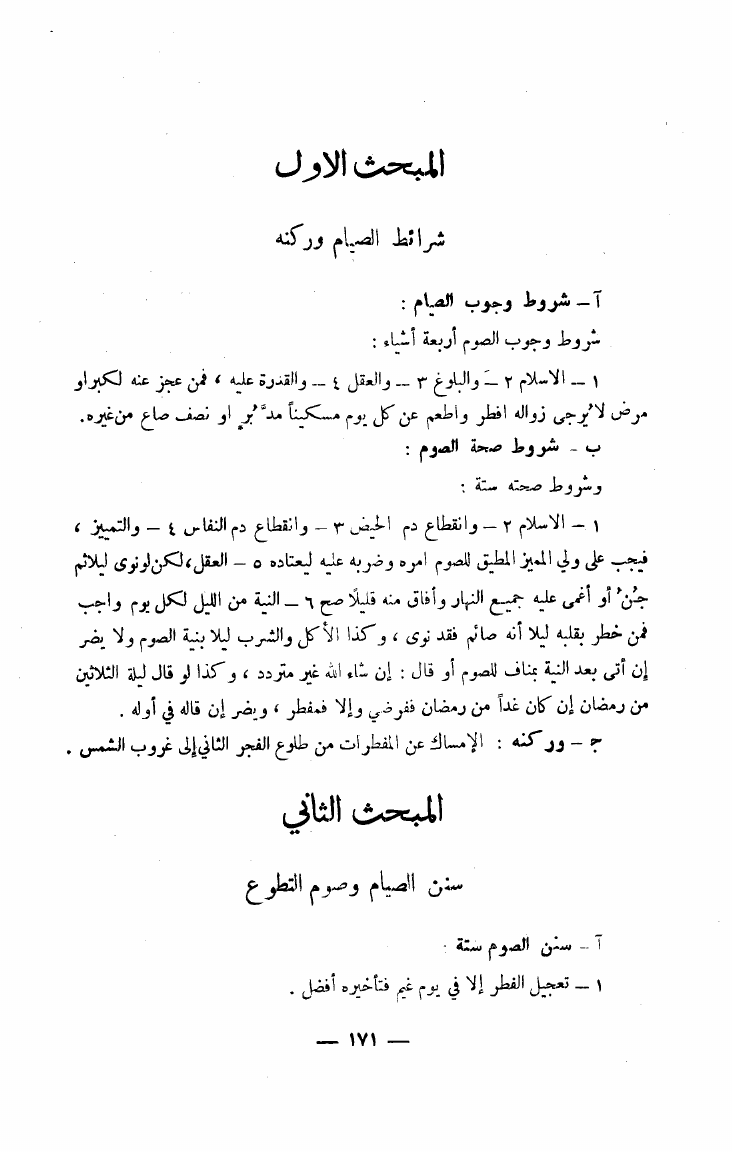 المبحث الاول
شرائط الصيام وركنه
آ – شروط وجوب الصيام :
شروط وجوب الصوم أربعة أشياء :
١ – الاسلام ٢ – والبلوغ ٣ – والعقل ٤ – والقدرة عليه ، فمن عجز عنه لكبر او
مرض لا يُرجى زواله افطر واطعم عن كل يوم مسكيناً مدَّ بُرٍ او نصف صاع من غيره.
ب - شروط صحة الصوم :
وشروط صحته ستة :
١ – الاسلام ٢ – وانقطاع دم الحيض ٣ – وانقطاع دم النفاس ٤ – والتمييز ،
فيجب على ولي المميز المطيق للصوم امره وضربه عليه ليعتاده ٥ – العقل، لكن لو نوى ليلا ثم
جُنَّ أو أغمى عليه جميع النهار وأفاق منه قليلًا صح ٦ – النية من الليل لكل يوم واجب
فمن خطر بقلبه ليلا أنه صائم فقد نوى ، وكذا الأكل والشرب ليلا بنية الصوم ولا يضر
إن أتى بعد النية بمناف للصوم أو قال : إن شاء الله غير متردد ، وكذا لو قال ليلة الثلاثين
من رمضان إن كان غداً من رمضان ففرضي وإلا فمفطر ، ويضر إن قاله في أوله .
ج – وركنه : الإمساك عن المفطرات من طلوع الفجر الثاني إلى غروب الشمس .
المبحث الثاني
سنن الصيام وصوم التطوع
آ - سنن الصوم ستة :
١ – تعجيل الفطر إلا في يوم غيم فتأخيره أفضل .
— ١٧١ —